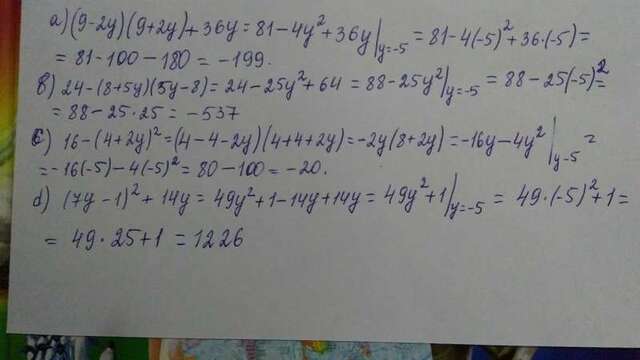 a) (9-2y)(9+2y)+36y = 81-4y²+36y|y=-5 = 81-4(-5)²+36·(-5)=
= 81-100-180 = -199.
b) 24-(8+5y)(5y-8) = 24-25y²+64 = 88-25y²|y=-5 = 88-25(-5)²=
= 88-25·25 = -537
c) 16-(4+2y)²=(4-4-2y)(4+4+2y)=-2y(8+2y)=-16y-4y²|y-5 =
=-16(-5)-4(-5)² = 80-100=-20.
d) (7y-1)²+14y = 49y²+1-14y+14y = 49y²+1|y=-5 = 49·(-5)²+1=
= 49·25+1 = 1226